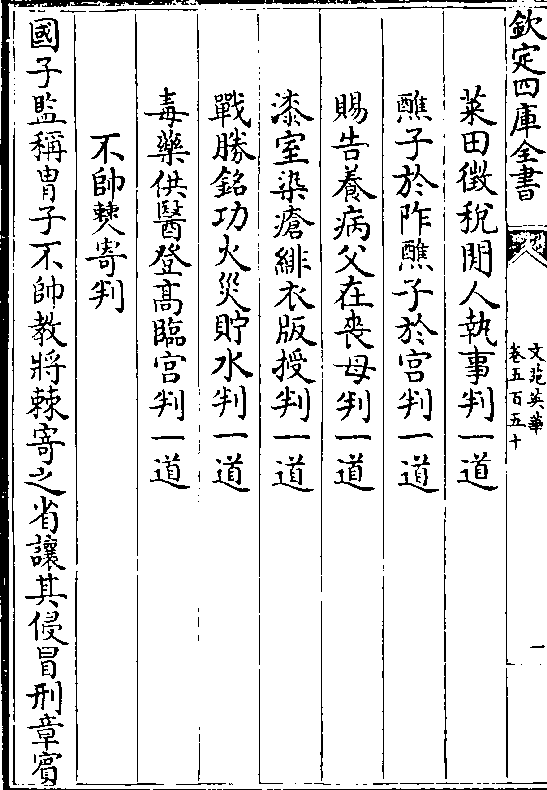 欽定四庫全書
文苑英華
卷五百五十
一
萊田徵稅閒人執事判一道
醮子於阼醮子於宮判一道
賜告養病父在喪母判一道
漆室染瘡緋衣版授判一道
戰勝銘功火災貯水判一道
毒藥供醫登高臨宫判一道
不帥𣗥寄判
國子監稱胄子不帥教將棘寄之省讓其侵冒刑章賔